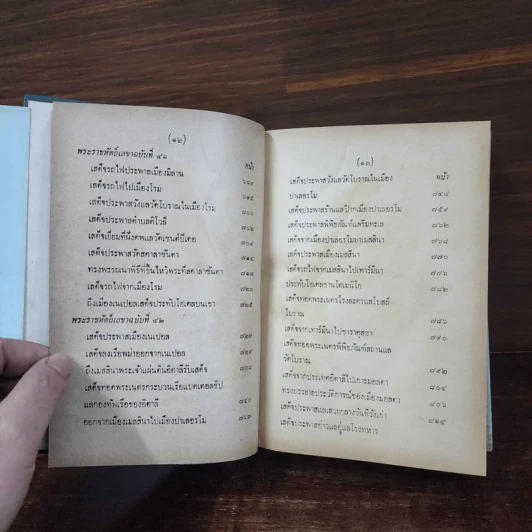 (๑๒)
พระราชหัตถ์เลขาฉบับที่ ๔๑
หน้า
เสด็จรถไฟประพาสเมืองมิลาน
เสด็จรถไฟไปเมืองโรม
เสด็จประพาสวังแลวัดโบราณในเมืองโรม
เสด็จประพาสตำบลติโวลี
เสด็จเยี่ยมที่ฝังศพแลวัดเซนต์ปีเตอ
เสด็จประพาสวัดสคาลาซันตา
ทรงพรรณนาพิธีที่ขึ้นไหว้พระที่สคาลาซันตา
เสด็จรถไฟจากเมืองโรม ๗๒๐
ถึงเมืองเนเปอลเสด็จประทับโฮเตลบนเขา ๗๒๕
พระราชหัตถ์เลขาฉบับที่ ๔๒
เสด็จประพาสเมืองเนเปอล
เสด็จลงเรือพม่าออกจากเนเปอล
ถึงเมสสินาพระเจ้าแผ่นดินอิตาลีรับเสด็จ
เสด็จทอดพระเนตรกระบวนเรือแบตเตอลชิป
แลกองทัพเรือของอิตาลี
ออกจากเมืองเมสสินาไปเมืองปาเลอรโม
(๑๓)
หน้า
เสด็จประพาสวังแลวัดโบราณในเมือง
ปาเลอรโม
เสด็จประพาสร้านแลป๊ากเมืองปาเลอรโม ๗๕๙
เสด็จประพาสพิพิธภัณฑ์แลริมทะเล ๗๖๒
เสด็จจากเมืองปาเลอรโมมาเมสสินา ๗๖๘
ประพาสเมืองเมสสินา ๗๗๐
เสด็จรถไฟจากเมสสินาไปเทาร์มีนา
ประทับโฮเตลซานโดเมนิโก ๗๘๒
เสด็จทอดพระเนตรโรงละครแลโบสถ์
โบราณ ๗๘๖
เสด็จจากเทาร์มีนาไปซาราคุสซา
เสด็จทอดพระเนตรพิพิธภัณฑ์สถานแล
วัดโบราณ
เสด็จจากประเทศอิตาลีไปเกาะมอลตา ๘๐๔
ทรงบรรยายประวัติการณ์ของเมืองมอลตา ๘๐๖
เสด็จประพาสแลเสวยกลางวันที่วังเก่า
เสด็จประพาสอ่าวแลอู่แลโรงทหาร